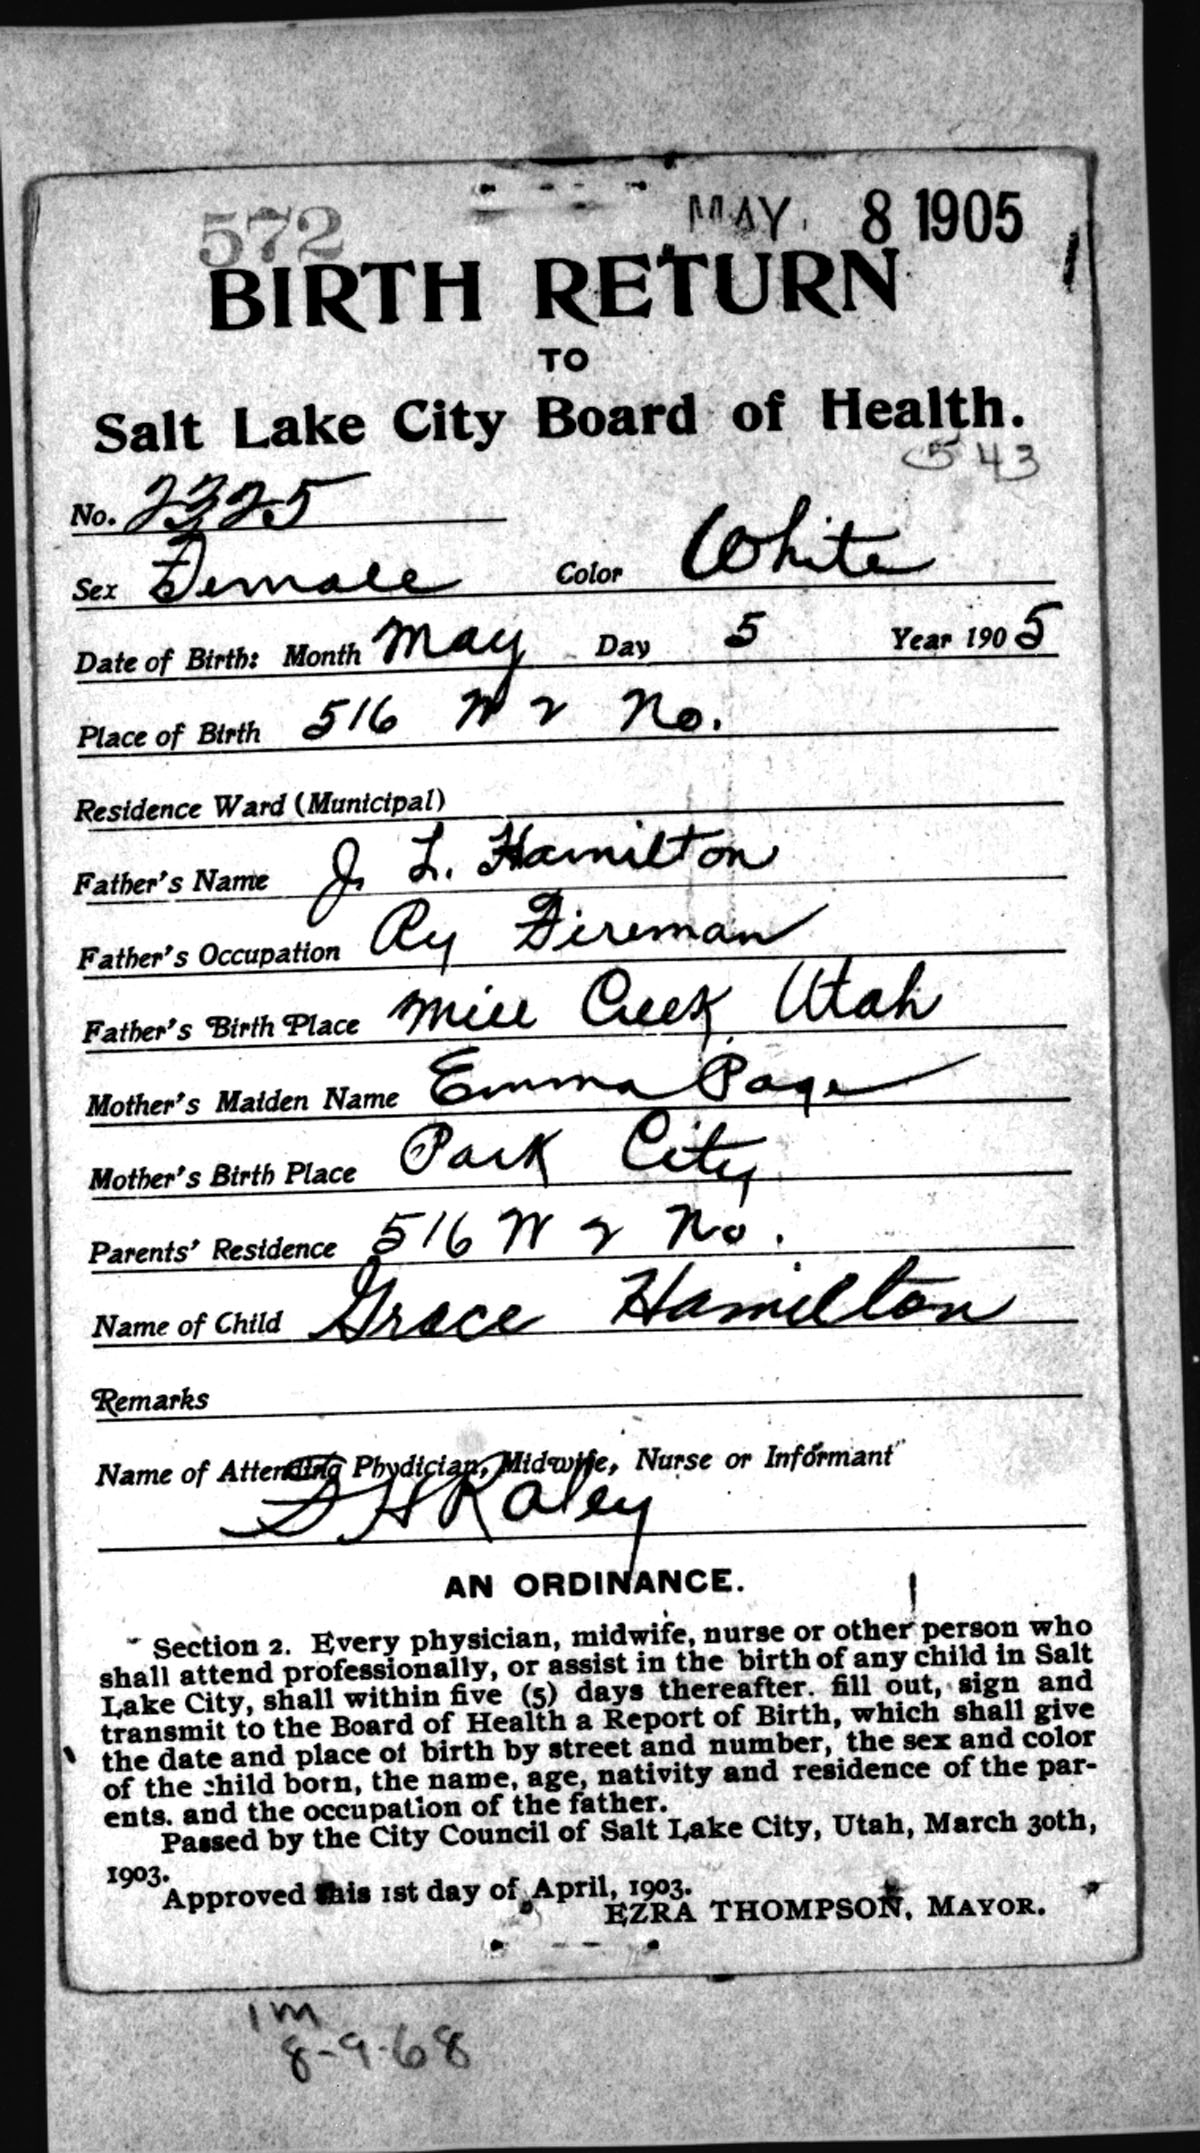 572 MAY 8 1905
BIRTH RETURN
TO
Salt Lake City Board of Health.
543
No. 2325
Sex Female Color White
Date of Birth: Month May Day 5 Year 1905
Place of Birth 516 W 2 No.
Residence Ward (Municipal)
Father's Name J. L. Hamilton
Father's Occupation Ry Fireman
Father's Birth Place Mill Creek Utah
Mother's Maiden Name Emma Page
Mother's Birth Place Park City
Parents' Residence 516 W 2 No.
Name of Child Grace Hamilton
Remarks
Name of Attending Phydician, Midwife, Nurse or Informant
S H Raley
AN ORDINANCE.
Section 2. Every physician, midwife, nurse or other person who
shall attend professionally, or assist in the birth of any child in Salt
Lake City, shall within five (5) days thereafter. fill out, sign and
transmit to the Board of Health a Report of Birth, which shall give
the date and place of birth by street and number, the sex and color
of the child born, the name, age, nativity and residence of the par-
ents. and the occupation of the father.
Passed by the City Council of Salt Lake City, Utah, March 30th,
1903.
Approved this 1st day of April, 1903.
EZRA THOMPSON, MAYOR.
1m
8-9-68